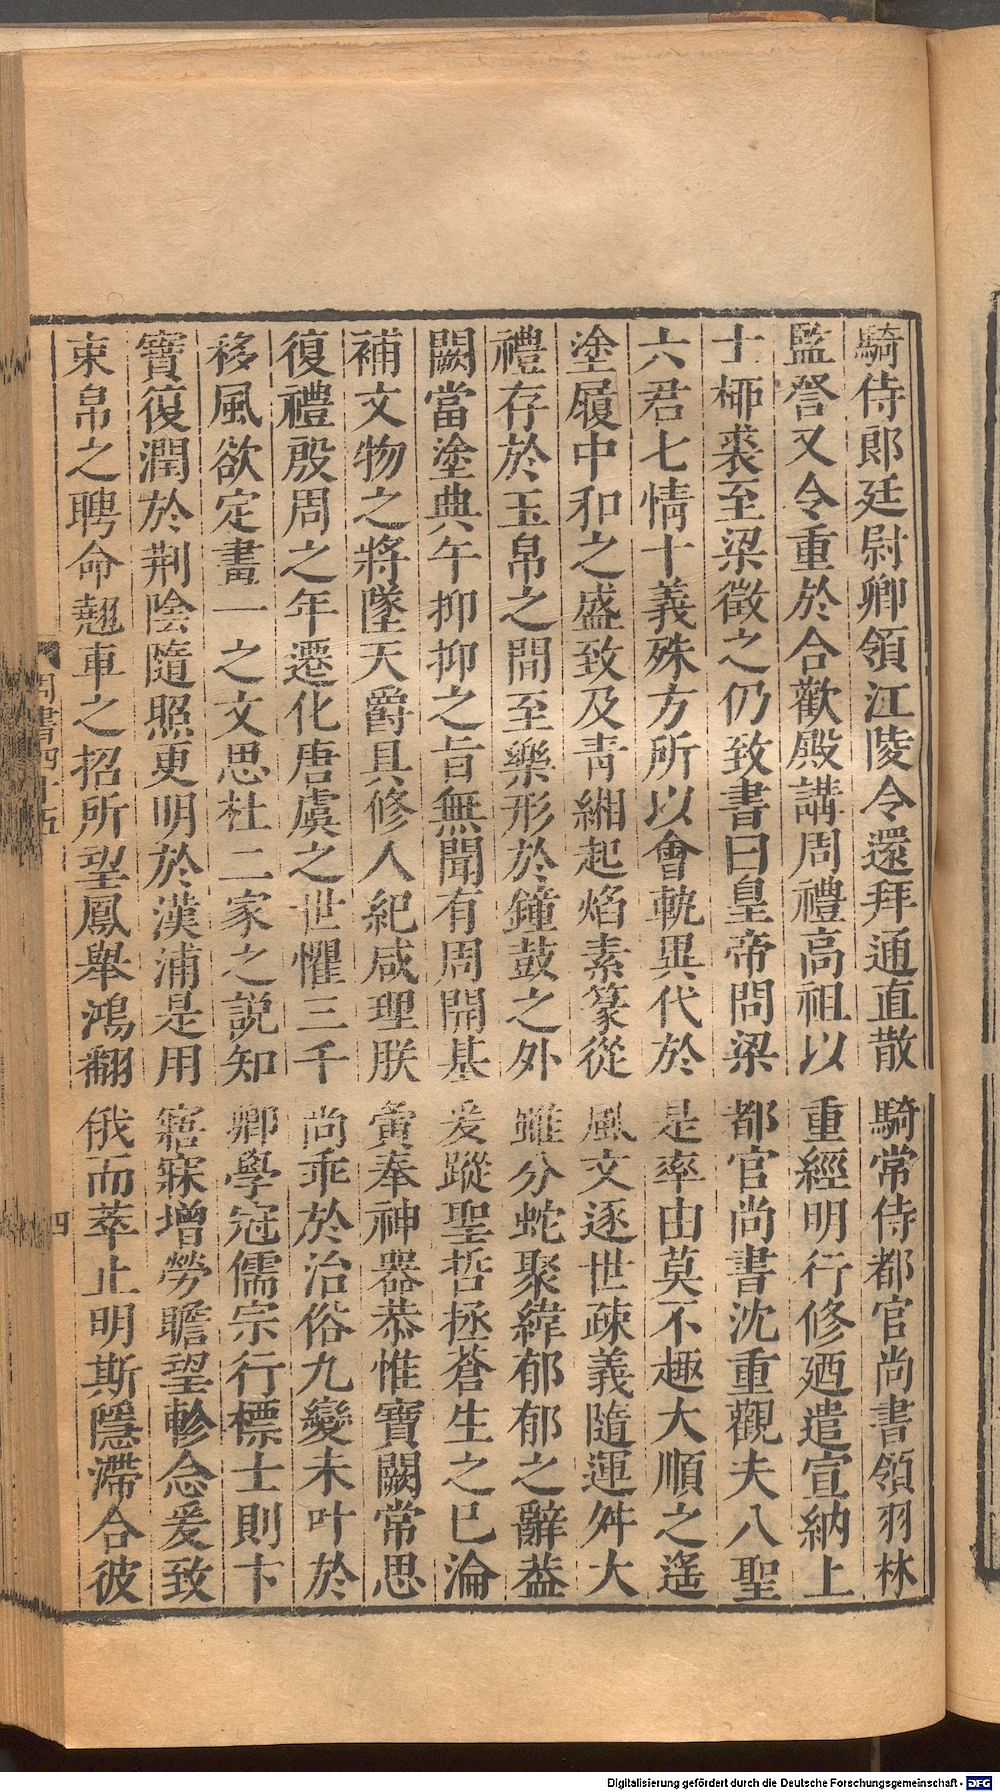 騎侍郎廷尉卿領江陵令還拜通直散騎常侍都官尚書領羽林
監詧又令重於合歡殿講周禮高祖以重經明行修廼遣宣納上
士栁裘至梁徵之仍致書曰皇帝問梁都官尚書沈重觀夫八聖
六君七情十義殊方所以會軌異代於是率由莫不趣大順之遙
塗履中和之盛致及青緗起焰素篆從風文逐世疎義隨運舛大
禮存於玉帛之間至樂形於鐘鼓之外雖分蛇聚緯郁郁之辭葢
闕當塗典午抑抑之旨無聞有周開基爰蹤聖哲拯蒼生之已淪
補文物之將墜天爵具修人紀咸理朕黃奉神器恭惟寶闕常思
復禮殷周之年遷化唐虞之世懼三千尚乖於治俗九變未叶於
移風欲定畫一之文思杜二家之説知卿學冠儒宗行標士則卞
寶復潤於荆陰隨照更明於漢浦是用寤寐增勞瞻望軫念爰致
束帛之聘命翹車之招所望鳳舉鴻翻俄而萃止明斯隱滯合彼
周書四十五
四
Digitalisierung gefördert durch die Deutsche Forschungsgemeinschaft - DFG